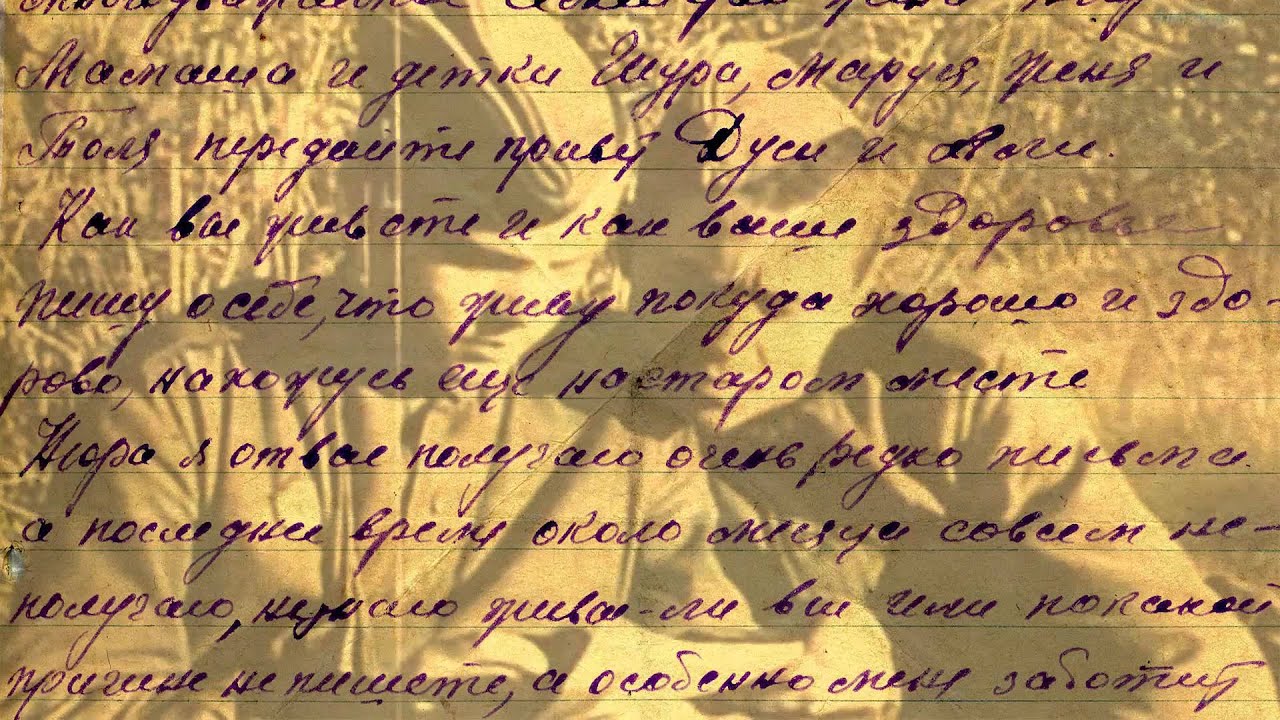 Мамаша и детки Шура, Маруся, Женя и
Толя передайте привет Дуси и
Как вы живете и как ваше здоровье
пишу о себе, что живу покуда хорошо и здо-
рово, нахожусь еще на старом месте
Нюра я от вас получаю очень редко письма
а последнее время около месяца совсем не-
получаю, незнаю живы-ли вы или по какой
причине не пишете, а особенно меня заботит